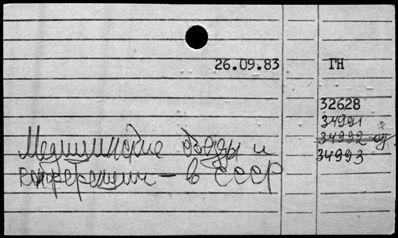 26.09.83 ГН
32628
34991
34992
34993
Медицинские съезды и
конференции – в СССР